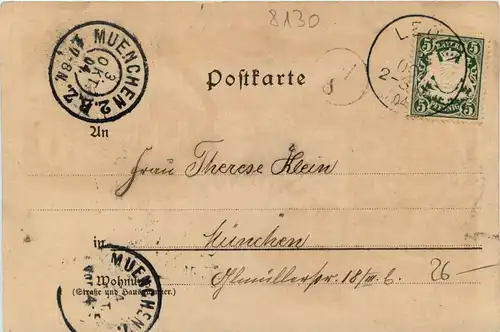 8130
MUENCHEN 2. B. Z.
3 OKT. 04
Postkarte
LE
2-3
04
BAYERN
5 5
5 PFENNIG 5
An
Frau Therese Klein
in München
Wohnung
(Straße und Hausnummer.)
Ohlmüllerstr. 18/III. 6
26 -
MUENCHEN 2